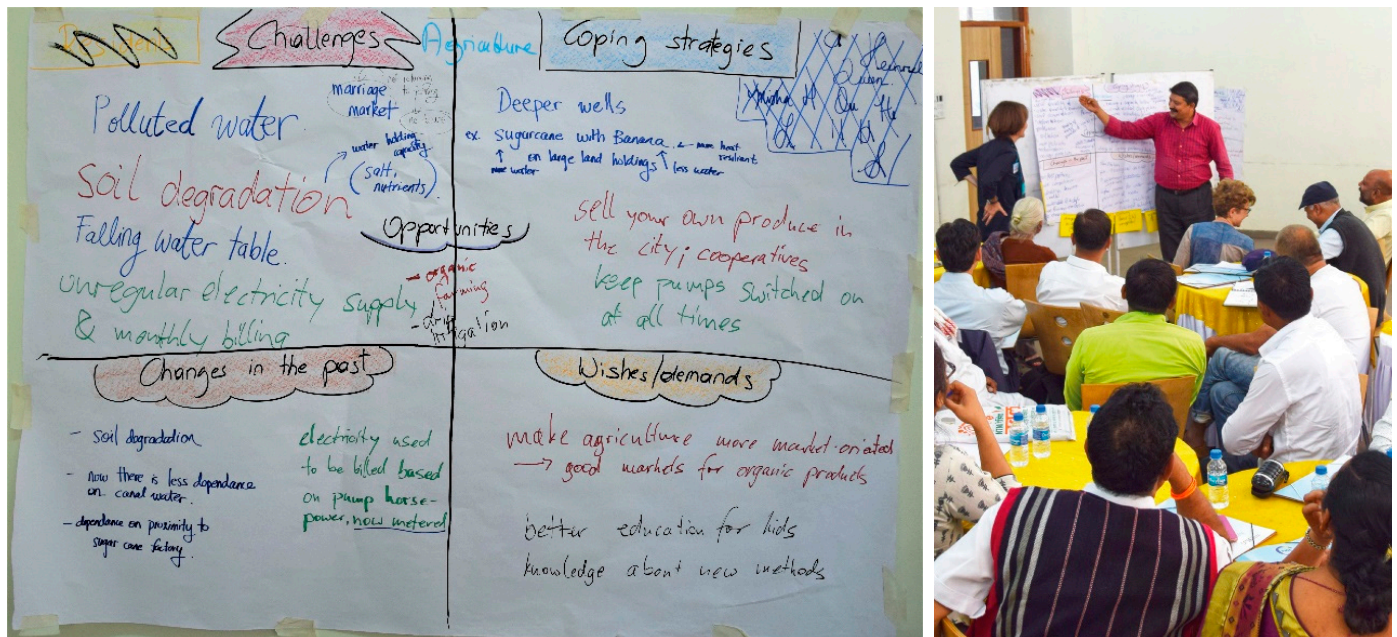 Challenges
Agriculture
Coping strategies
Polluted water
marriage
market
water holding
capacity
(salt,
nutrients)
Soil degradation
Falling water table.
unregular electricity supply
& monthly billing
Opportunities
- organic
farming
- drip
irrigation
Deeper wells
ex. sugarcane with Banana. ← more heat
resilient
on large land holdings
more water
less water
sell your own produce in
the city; cooperatives
keep pumps switched on
at all times
Changes in the past
- soil degradation
- now there is less dependance
on canal water.
- dependance on proximity to
sugar cane factory.
electricity used
to be billed based
on pump horse-
power, now metered
Wishes/demands
make agriculture more market-oriented
→ good markets for organic products
better education for kids
knowledge about new methods